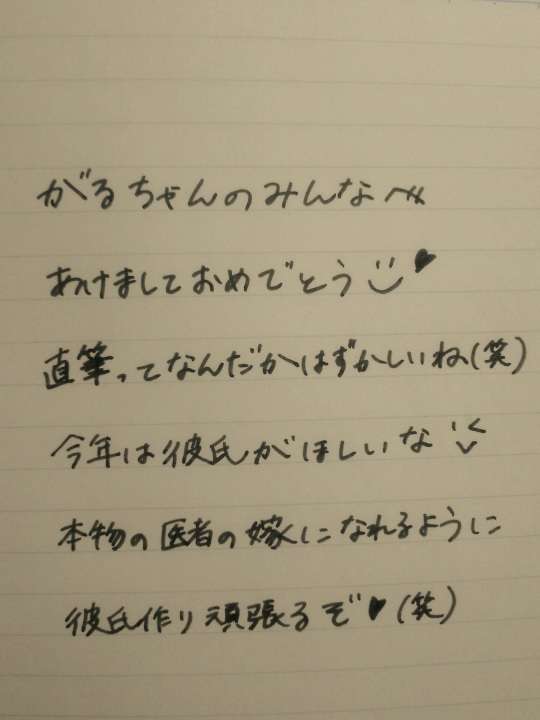 がるちゃんのみんなへ
あけましておめでとう
直筆ってなんだかはずかしいね(笑)
今年は彼氏がほしいな
本物の医者の嫁になれるように
彼氏作り頑張るぞ♥(笑)